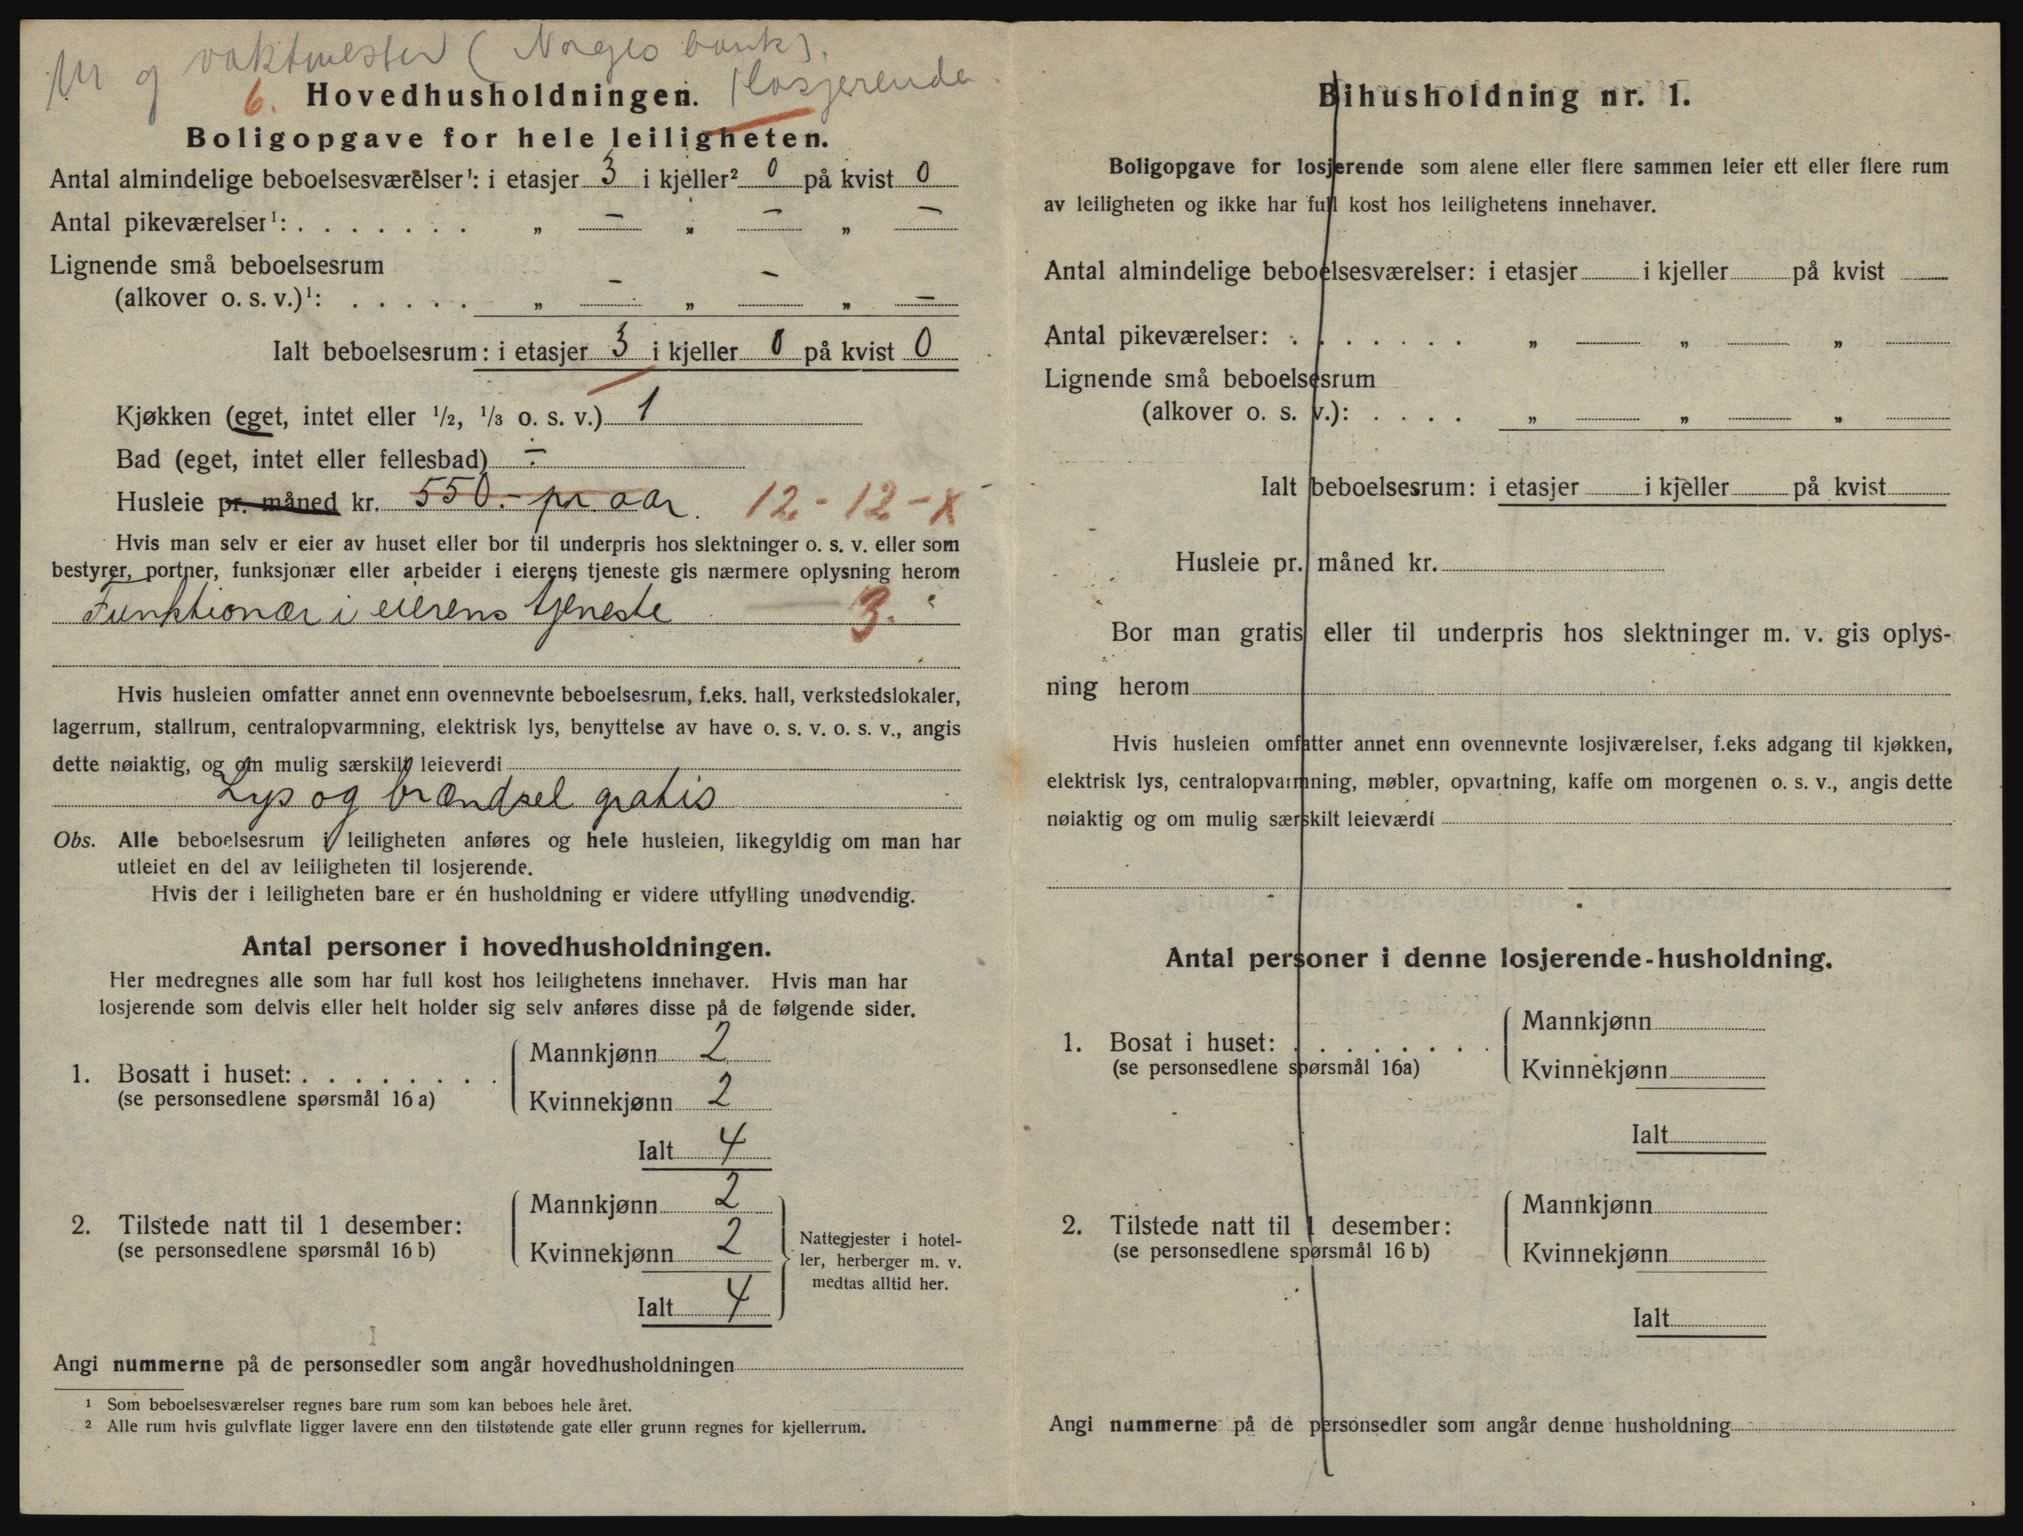 og vaktmester (Norges bank).
6. Hovedhusholdningen. 1 losjerende.
Boligopgave for hele leiligheten.
Antal almindelige beboelsesværelser¹: i etasjer 3 i kjeller² 0 på kvist 0
Antal pikeværelser¹: . . . . . . . „ — „ — „ —
Lignende små beboelsesrum
(alkover o. s. v.)¹: . . . . . „ — „ — „ —
Ialt beboelsesrum: i etasjer 3 i kjeller 0 på kvist 0
Kjøkken (eget, intet eller ½, ⅓ o. s. v.) 1
Bad (eget, intet eller fellesbad) ÷
Husleie pr. måned kr. 550.- pr. aar. 12 - 12 - X
Hvis man selv er eier av huset eller bor til underpris hos slektninger o. s. v. eller som
bestyrer, portner, funksjonær eller arbeider i eierens tjeneste gis nærmere oplysning herom
Funktionær i eierens tjeneste 3.
Hvis husleien omfatter annet enn ovennevnte beboelsesrum, f.eks. hall, verkstedslokaler,
lagerrum, stallrum, centralopvarmning, elektrisk lys, benyttelse av have o. s. v. o. s. v., angis
dette nøiaktig, og om mulig særskilt leieverdi
Lys og brændsel gratis
Obs. Alle beboelsesrum i leiligheten anføres og hele husleien, likegyldig om man har
utleiet en del av leiligheten til losjerende.
Hvis der i leiligheten bare er én husholdning er videre utfylling unødvendig.
Antal personer i hovedhusholdningen.
Her medregnes alle som har full kost hos leilighetens innehaver. Hvis man har
losjerende som delvis eller helt holder sig selv anføres disse på de følgende sider.
1. Bosatt i huset: . . . . . . . .
(se personsedlene spørsmål 16 a)
Mannkjønn 2
Kvinnekjønn 2
Ialt 4
2. Tilstede natt til 1 desember:
(se personsedlene spørsmål 16 b)
Mannkjønn 2
Kvinnekjønn 2
Ialt 4
Nattegjester i hotel-
ler, herberger m. v.
medtas alltid her.
Angi nummerne på de personsedler som angår hovedhusholdningen
¹ Som beboelsesværelser regnes bare rum som kan beboes hele året.
² Alle rum hvis gulvflate ligger lavere enn den tilstøtende gate eller grunn regnes for kjellerrum.
Bihusholdning nr. 1.
Boligopgave for losjerende som alene eller flere sammen leier ett eller flere rum
av leiligheten og ikke har full kost hos leilighetens innehaver.
Antal almindelige beboelsesværelser: i etasjer i kjeller på kvist
Antal pikeværelser: . . . . . . . „ „ „
Lignende små beboelsesrum
(alkover o. s. v.): . . . . „ „ „
Ialt beboelsesrum: i etasjer i kjeller på kvist
Husleie pr. måned kr.
Bor man gratis eller til underpris hos slektninger m. v. gis oplys-
ning herom
Hvis husleien omfatter annet enn ovennevnte losjiværelser, f.eks adgang til kjøkken,
elektrisk lys, centralopvarmning, møbler, opvartning, kaffe om morgenen o. s. v., angis dette
nøiaktig og om mulig særskilt leieværdi
Antal personer i denne losjerende-husholdning.
1. Bosat i huset: . . . . . . . .
(se personsedlene spørsmål 16a)
Mannkjønn
Kvinnekjønn
Ialt
2. Tilstede natt til 1 desember:
(se personsedlene spørsmål 16 b)
Mannkjønn
Kvinnekjønn
Ialt
Angi nummerne på de personsedler som angår denne husholdning